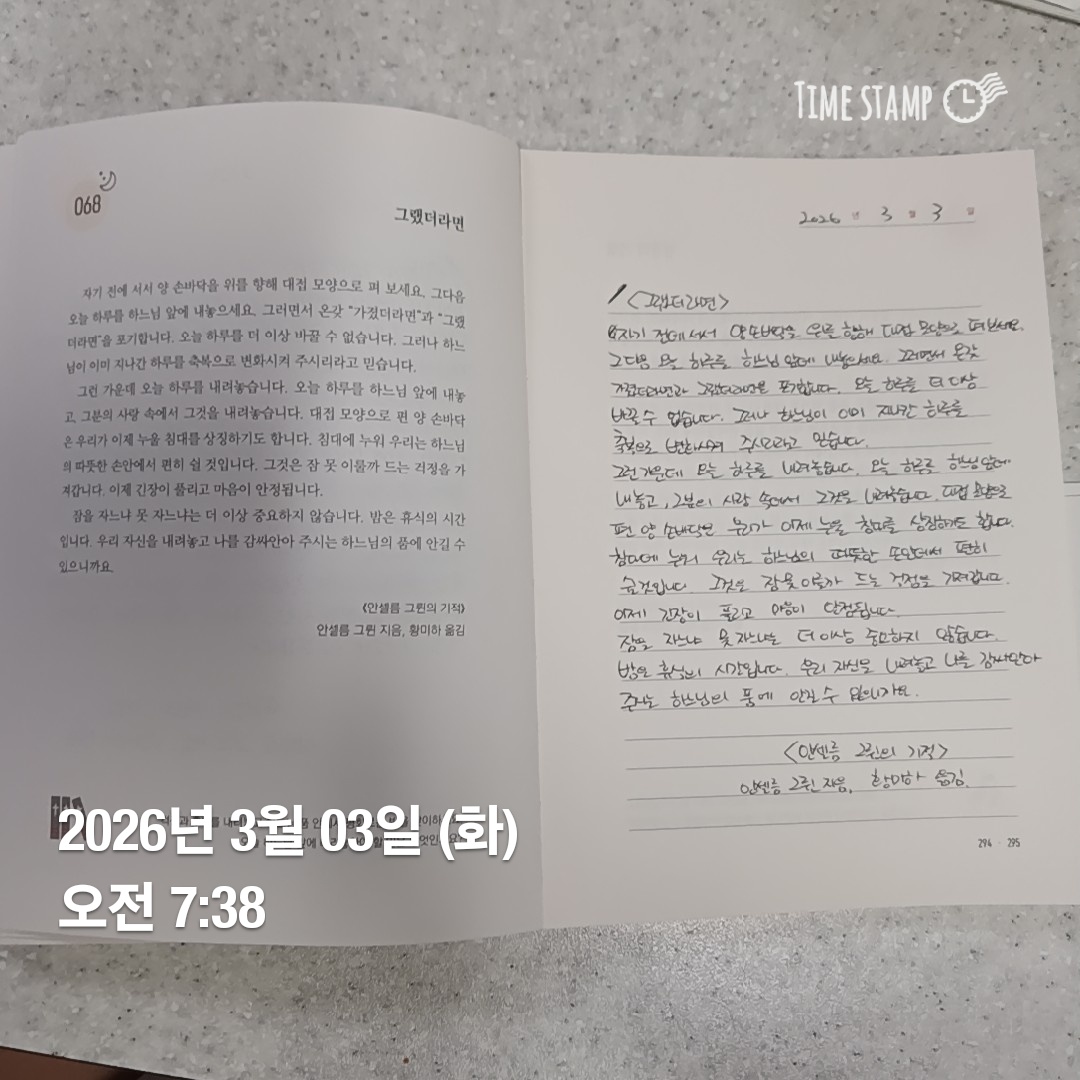 TIME STAMP
068
그랬더라면
자기 전에 서서 양 손바닥을 위를 향해 대접 모양으로 펴 보세요. 그다음
오늘 하루를 하느님 앞에 내놓으세요. 그러면서 온갖 “가졌더라면”과 “그랬
더라면”을 포기합니다. 오늘 하루를 더 이상 바꿀 수 없습니다. 그러나 하느
님이 이미 지나간 하루를 축복으로 변화시켜 주시리라고 믿습니다.
그런 가운데 오늘 하루를 내려놓습니다. 오늘 하루를 하느님 앞에 내놓
고, 그분의 사랑 속에서 그것을 내려놓습니다. 대접 모양으로 편 양 손바닥
은 우리가 이제 누울 침대를 상징하기도 합니다. 침대에 누워 우리는 하느님
의 따뜻한 손안에서 편히 쉴 것입니다. 그것은 잠 못 이룰까 드는 걱정을 가
져갑니다. 이제 긴장이 풀리고 마음이 안정됩니다.
잠을 자느냐 못 자느냐는 더 이상 중요하지 않습니다. 밤은 휴식의 시간
입니다. 우리 자신을 내려놓고 나를 감싸안아 주시는 하느님의 품에 안길 수
있으니까요.
《안셀름 그륀의 기적》
안셀름 그륀 지음, 황미하 옮김
2026년 3월 3일
<그랬더라면>
자기 전에 서서 양 손바닥을 위를 향해 대접 모양으로 펴 보세요.
그다음 오늘 하루를 하느님 앞에 내놓으세요. 그러면서 온갖
가졌더라면과 그랬더라면을 포기합니다. 오늘 하루를 더 이상
바꿀 수 없습니다. 그러나 하느님이 이미 지나간 하루를
축복으로 변화시켜 주시리라고 믿습니다.
그런 가운데 오늘 하루를 내려놓습니다. 오늘 하루를 하느님 앞에
내놓고, 그분의 사랑 속에서 그것을 내려놓습니다. 대접 모양으로
편 양 손바닥은 우리가 이제 누울 침대를 상징하기도 합니다.
침대에 누워 우리는 하느님의 따뜻한 손안에서 편히
쉴 것입니다. 그것은 잠 못 이룰까 드는 걱정을 가져갑니다.
이제 긴장이 풀리고 마음이 안정됩니다.
잠을 자느냐 못 자느냐는 더 이상 중요하지 않습니다.
밤은 휴식의 시간입니다. 우리 자신을 내려놓고 나를 감싸안아
주시는 하느님의 품에 안길 수 있으니까요.
<안셀름 그륀의 기적>
안셀름 그륀 지음, 황미하 옮김.
294 · 295
2026년 3월 03일 (화)
오전 7:38